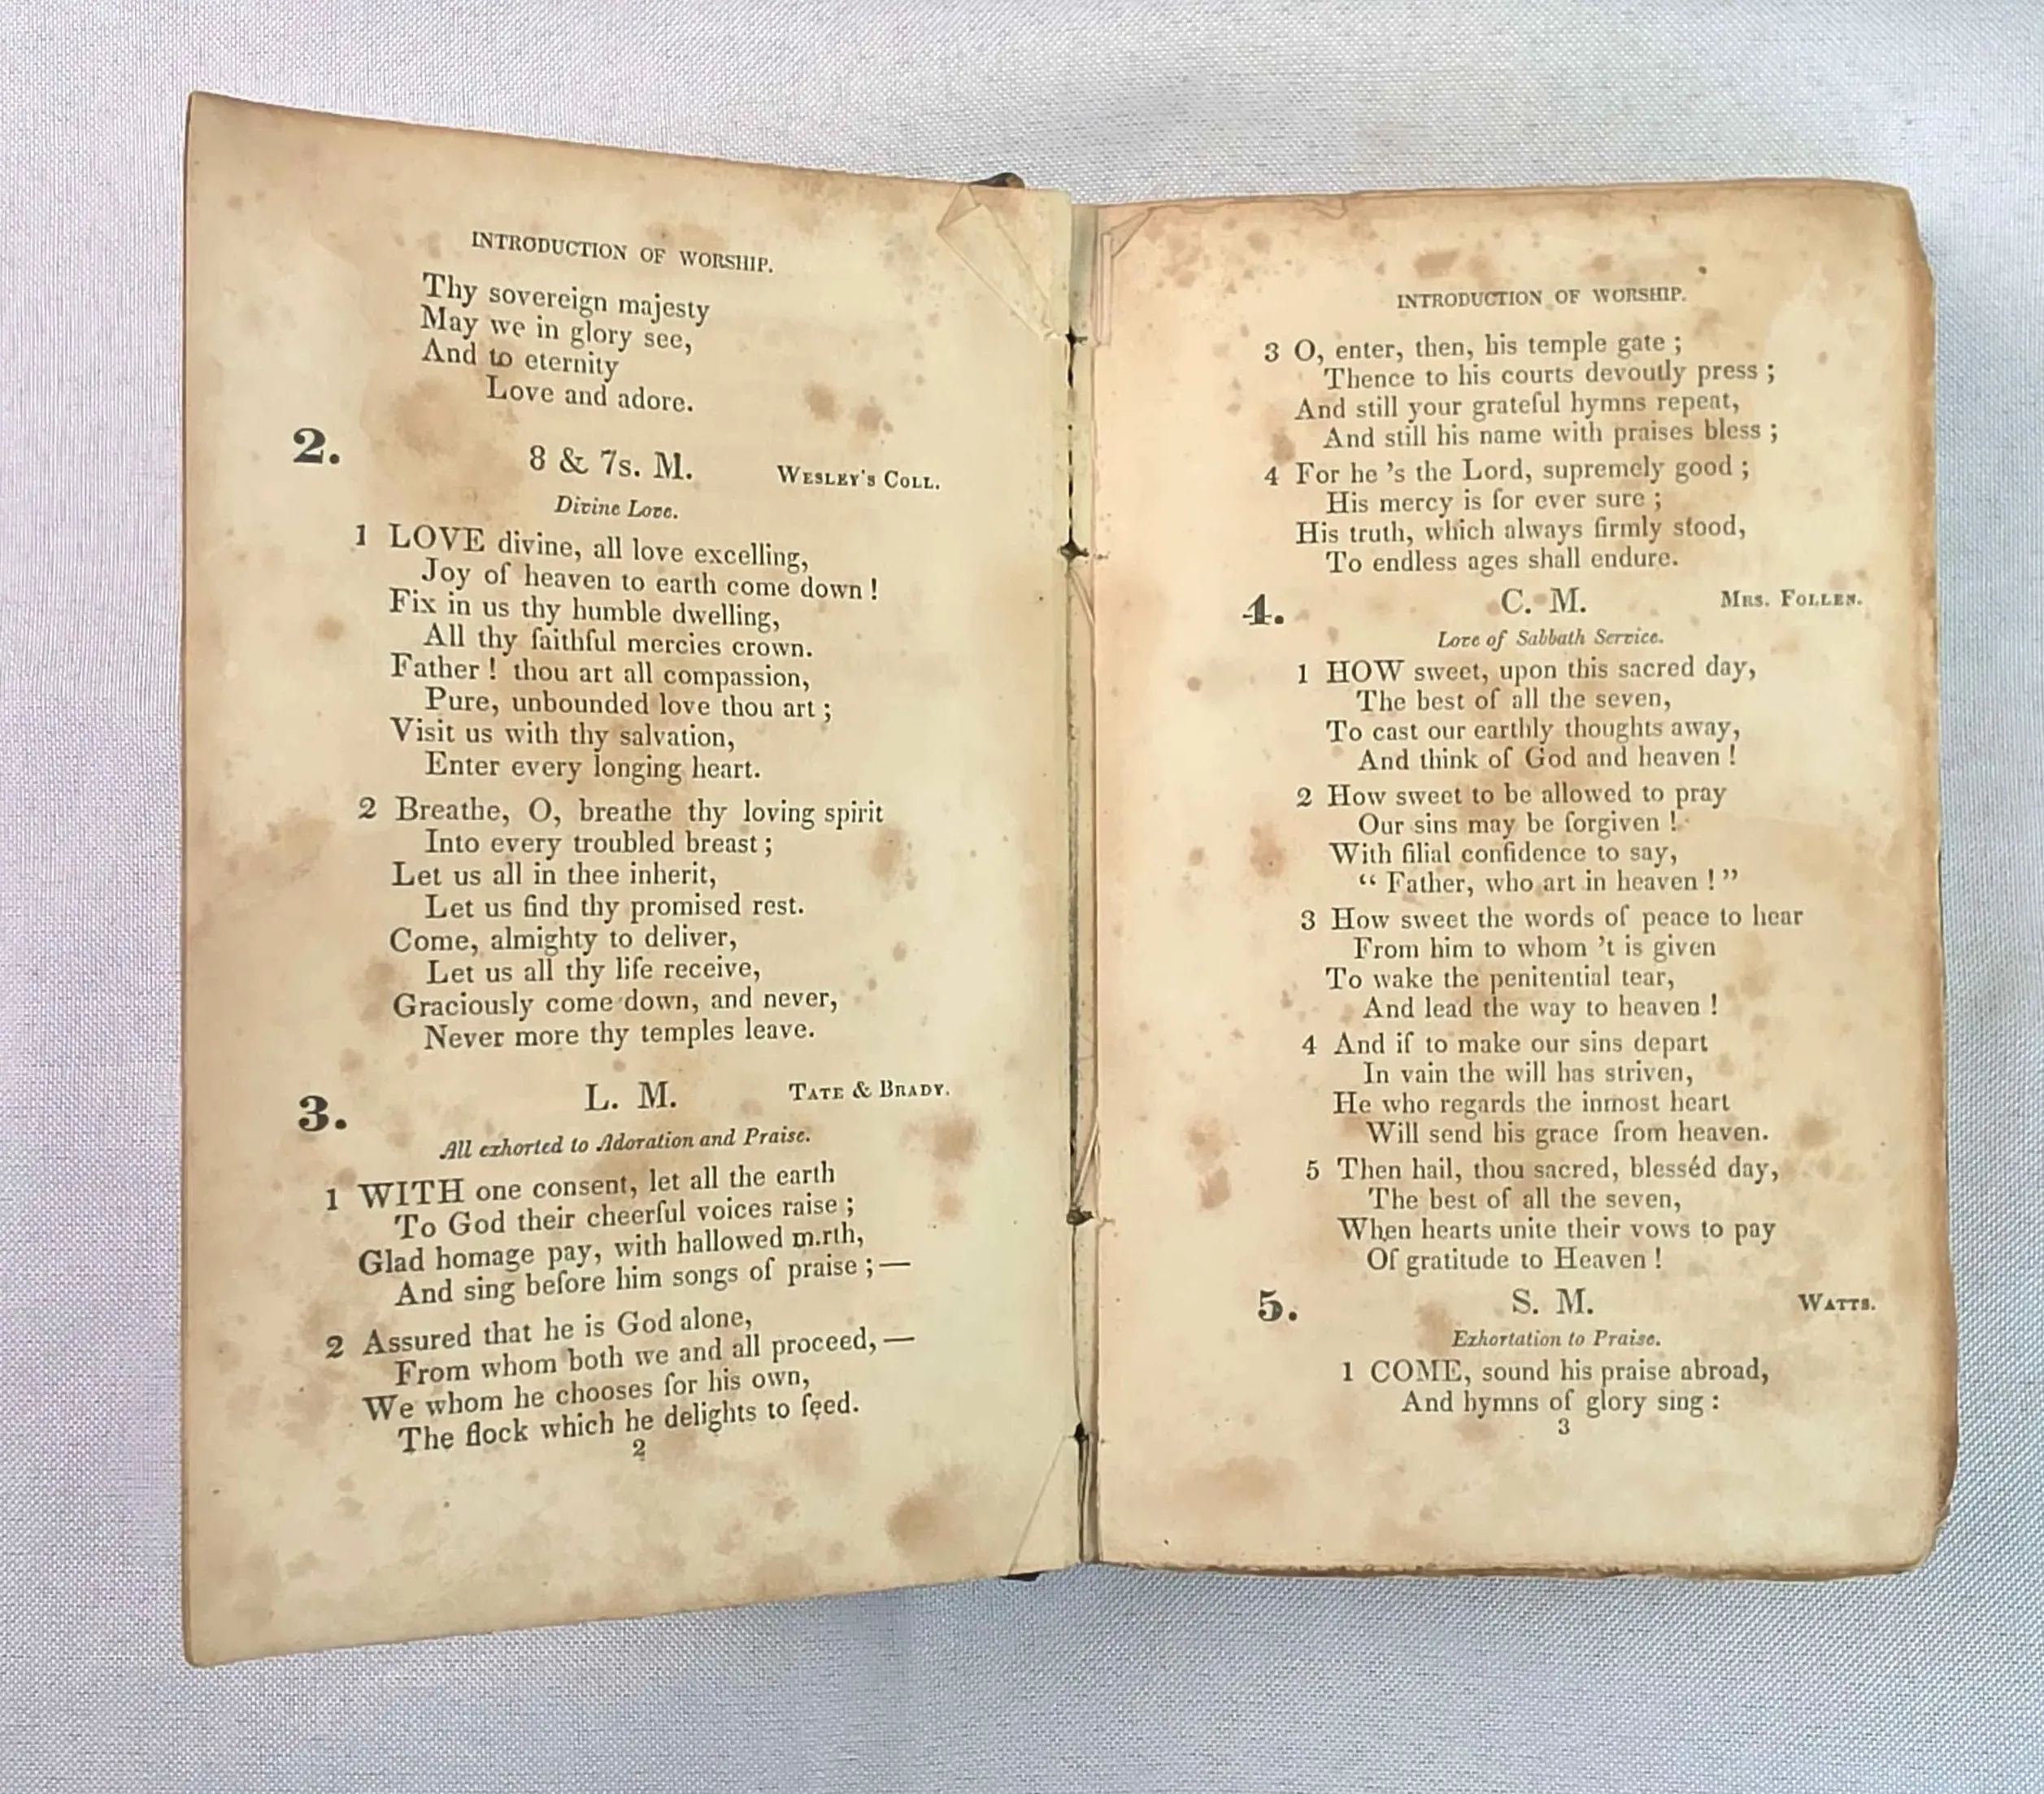 INTRODUCTION OF WORSHIP.
Thy sovereign majesty
May we in glory see,
And to eternity
Love and adore.
2. 8 & 7s. M. WESLEY'S COLL.
Divine Love.
1 LOVE divine, all love excelling,
Joy of heaven to earth come down !
Fix in us thy humble dwelling,
All thy faithful mercies crown.
Father ! thou art all compassion,
Pure, unbounded love thou art ;
Visit us with thy salvation,
Enter every longing heart.
2 Breathe, O, breathe thy loving spirit
Into every troubled breast ;
Let us all in thee inherit,
Let us find thy promised rest.
Come, almighty to deliver,
Let us all thy life receive,
Graciously come down, and never,
Never more thy temples leave.
3. L. M. TATE & BRADY.
All exhorted to Adoration and Praise.
1 WITH one consent, let all the earth
To God their cheerful voices raise ;
Glad homage pay, with hallowed m.rth,
And sing before him songs of praise ; —
2 Assured that he is God alone,
From whom both we and all proceed, —
We whom he chooses for his own,
The flock which he delights to feed.
2
INTRODUCTION OF WORSHIP.
3 O, enter, then, his temple gate ;
Thence to his courts devoutly press ;
And still your grateful hymns repeat,
And still his name with praises bless ;
4 For he 's the Lord, supremely good ;
His mercy is for ever sure ;
His truth, which always firmly stood,
To endless ages shall endure.
4. C. M. MRS. FOLLEN.
Love of Sabbath Service.
1 HOW sweet, upon this sacred day,
The best of all the seven,
To cast our earthly thoughts away,
And think of God and heaven !
2 How sweet to be allowed to pray
Our sins may be forgiven !
With filial confidence to say,
“ Father, who art in heaven ! ”
3 How sweet the words of peace to hear
From him to whom 't is given
To wake the penitential tear,
And lead the way to heaven !
4 And if to make our sins depart
In vain the will has striven,
He who regards the inmost heart
Will send his grace from heaven.
5 Then hail, thou sacred, blesséd day,
The best of all the seven,
When hearts unite their vows to pay
Of gratitude to Heaven !
5. S. M. WATTS.
Exhortation to Praise.
1 COME, sound his praise abroad,
And hymns of glory sing :
3